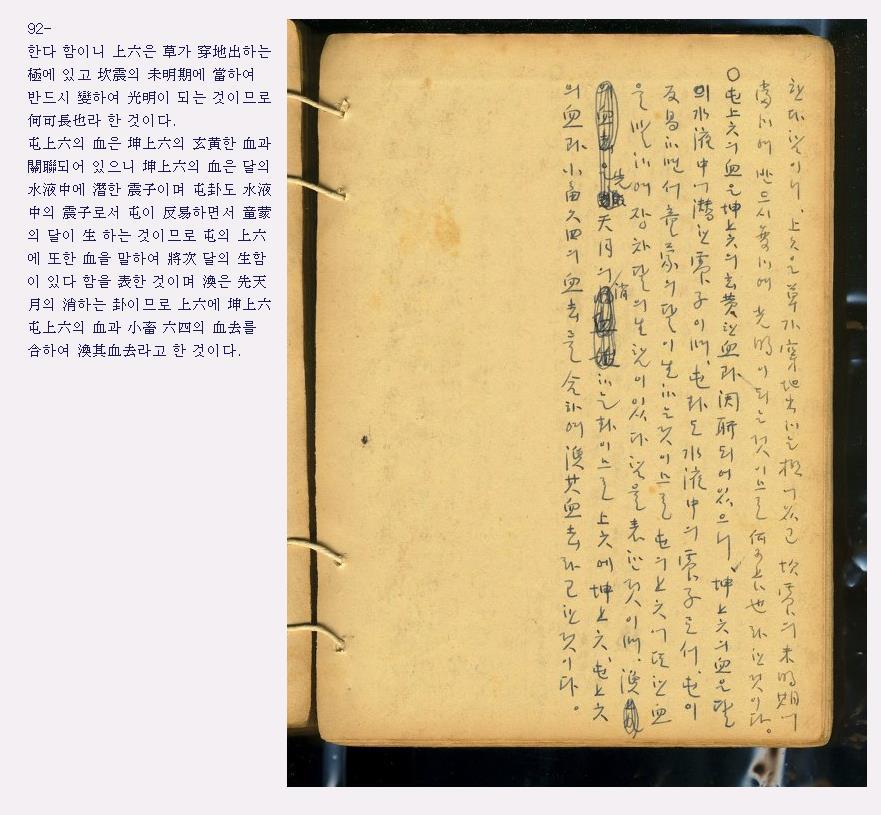 92-
한다 함이니 上六은 草가 穿地出하는
極에 있고 坎震의 未明期에 當하여
반드시 變하여 光明이 되는 것이므로
何可長也라 한 것이다.
屯上六의 血은 坤上六의 玄黄한 血과
關聯되어 있으니 坤上六의 血은 달의
水液中에 潛한 震子이며 屯卦도 水液
中의 震子로서 屯이 反易하면서 童蒙
의 달이 生 하는 것이므로 屯의 上六
에 또한 血을 말하여 將次 달의 生함
이 있다 함을 表한 것이며 渙은 先天
月의 消하는 卦이므로 上六에 坤上六
屯上六의 血과 小畜 六四의 血去를
合하여 渙其血去라고 한 것이다.
한다 함이니, 上六은 草가 穿地出하는 極에 있고 坎震의 未明期에
當하여 반드시 變하여 光明이 되는 것이므로 何可長也라 한 것이다。
○屯上六의 血은 坤上六의 玄黃한 血과 関聯되어 있으니, 坤上六의 血은 달
의 水液中에 潛한 震子이며, 屯卦도 水液中의 震子로서, 屯이
反易하면서 童蒙의 달이 生하는 것이므로 屯의 上六에 또한 血
을 말하여 장차 달의 生함이 있다 함을 表한 것이며, 渙
은 先天月의 消하는 卦이므로 上六에 坤上六, 屯上六
의 血과 小畜六四의 血去를 合하여 渙其血去라고 한 것이다。